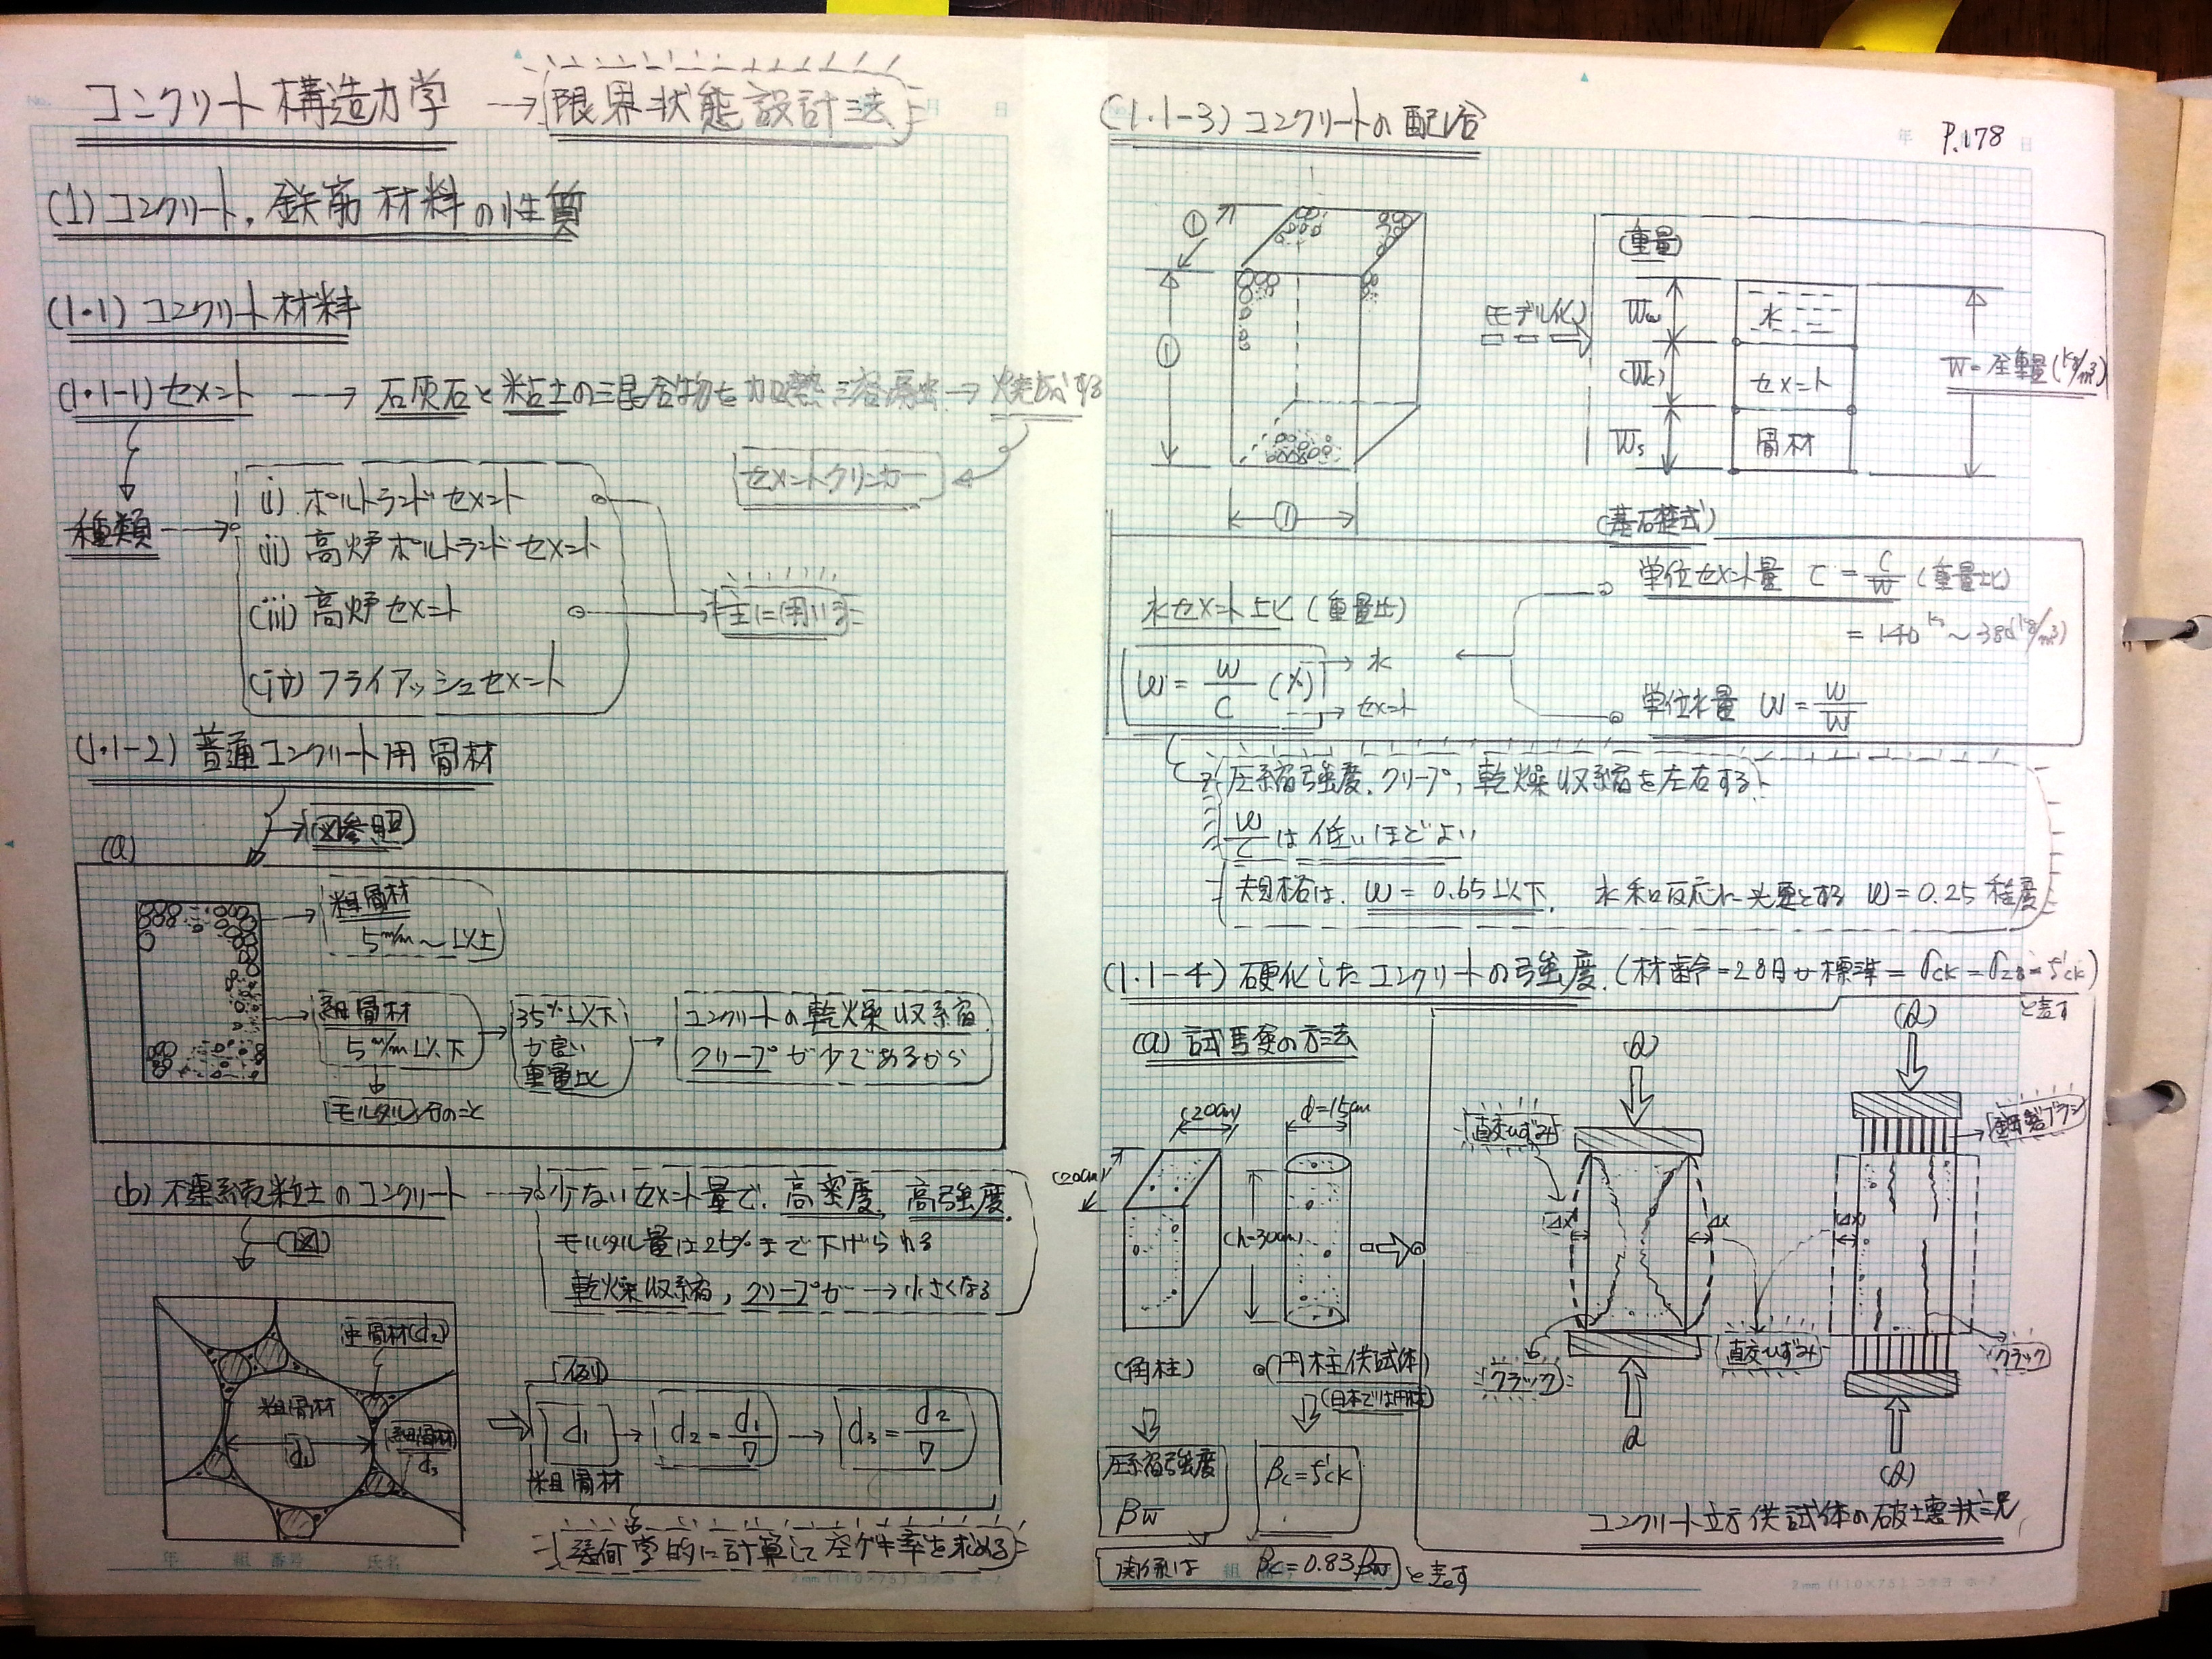 コンクリート構造力学 → 限界状態設計法
(1) コンクリート, 鉄筋材料の性質
(1・1) コンクリート材料
(1・1-1) セメント → 石灰石と粘土の混合物を加熱溶 → 焼成する
セメントクリンカー
種類
(i) ポルトランドセメント
(ii) 高炉ポルトランドセメント
(iii) 高炉セメント
主に用いる
(iv) フライアッシュセメント
(1・1-2) 普通コンクリート用骨材
図参照
(a)
粗骨材
5m/m〜以上
細骨材
5m/m以下
モルタル分のこと
35%以下
が良い
重量比
コンクリートの乾燥収縮
クリープが少であるから
(b) 不連続粒土のコンクリート → 少ないセメント量で, 高密度, 高強度,
モルタル量は25%まで下げられる
乾燥収縮, クリープが → 小さくなる
(図)
中骨材(d2)
粗骨材
d1
細骨材
d3
(例)
d1 → d2 = d1/7 → d3 = d2/7
粗骨材
幾何学的に計算して空ゲキ率を求める
年 組 番号 氏名
(1・1-3) コンクリートの配合
年 P.178 日
①
①
①
(モデル化)
(重量)
Ww
水
(Wc)
セメント
Ws
骨材
W = 全重量 (kg/m3)
(基礎式)
単位セメント量 C = C/W (重量比)
= 140kg 〜 380(kg/m3)
水セメント比 (重量比)
W = W/C (%)
→ 水
→ セメント
単位水量 W = W/W
圧縮強度, クリープ, 乾燥収縮を左右する
W/C は 低いほどよい
規格は, W = 0.65以下, 水和反応に必要とする W = 0.25 程度
(1.1-4) 硬化したコンクリートの強度, (材齢=28日を標準 = σck = σ28 = f'ck)
と表す
(a) 試験の方法
(20cm)
(20cm)
d=15cm
(h=30cm)
(角柱)
(円柱供試体)
(日本では円柱)
圧縮強度
βw
βc = f'ck
関係は βc = 0.83βw と表す
直交ひずみ
Δx
Δx
クラック
直交ひずみ
Δx
鋼製ブラシ
クラック
コンクリート立方供試体の破壊状況